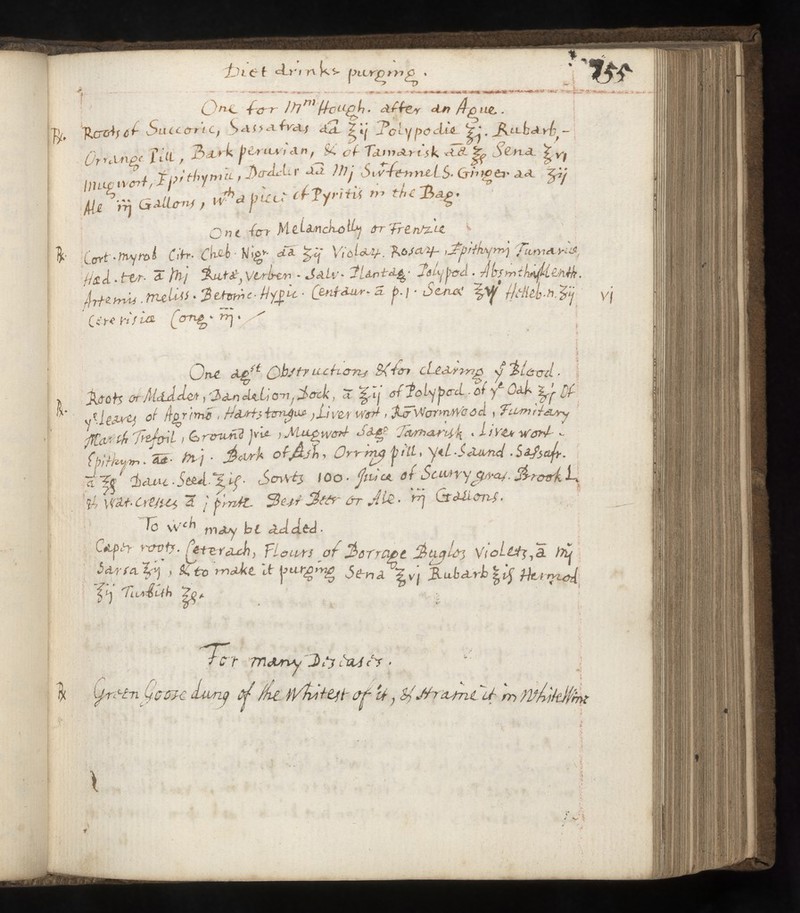 Diet drinks purging.
755
One for Mm Hough. after an Ague.
℞. Roots of Succorie, Sassafras āā ℥ij Polypodie ℥j. Rubarb,-
Orrange Pill, Bark peruvian, & of Tamarisk āā ℥ß Sena ℥vj
mugwort, Epithymū, Dodder āā Mj Sw: fennel S. Ginger aa ℥ij
Ale iij Gallons, wth a piece of Pyritis in the Bag.
One for Melancholly or Frenzie
℞. Cort. myrob Citr. Cheb. Nigr. āā ℥ij Violaꝝ. Rosaꝝ, Epithymj Fumariæ,
Hæd. ter. ā Mj Rutæ, Verben. Salv. Plantag. Polypod. Absinthij,
Artemis. meliss. Betonic. Hypic. Centaur. ā p.j. Senæ Helleb. n. ℥ij vj
Cerevisiæ Cong. iij.
One agst Obstructions & for clearing ye Blood.
℞. Roots of Madder, Dandelion, Dock, ā ℥ij of Polypod. of ye Oak Of
ye leaves of Agrimō, Hartstongue, Liverwort, Ro Wormwood, Fumitary
Marsh Trefoil, Ground Jvie, Mugwort Sage Tamarisk. Liverwort.
Epithym. āā. mj. Bark of Ash, Orring pill, yel. Saund. Sassafr.
ā ℥ß Dauc. Seed. ℥iß. Sowts 100. Juice of Scurvygras. Brook L.
& Wat. cresses ā j pinte Best Beer or Ale. iij Gallons.
To wch may be added.
Caper roots. Ceterach, Flours of Borrage Buglos Violets, ā mj
Sarsa ℥ij, & to make it purging Sena ℥vj Rubarb ℥iß Hermod
℥ij Turbith ℥ß.
For many Diseases.
℞ Green Goose dung of the Whitest of it, & straine it in White Wine